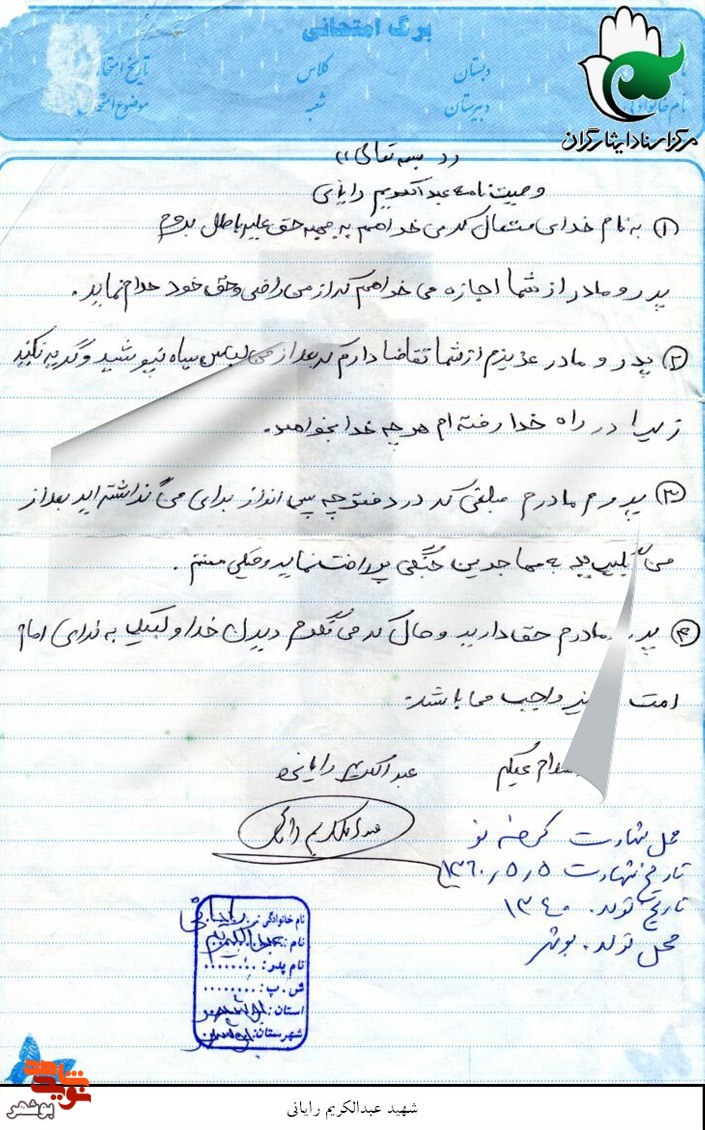 برگ امتحانی
کلاس دبستان
شعبه دبیرستان
مرکز اسناد ایثارگران
«بسمه تعالی»
وصیت نامه عبدالکریم رایانی
۱ به نام خدای متعال که می خواهم به جبهه حق علیه باطل بروم
پدر و مادر از شما اجازه می خواهم که از من راضی و حق خود حلام نماید.
۲ پدر و مادر عزیزم از شما تقاضا دارم که بعد از من لباس سیاه نپوشید و گریه نکنید
زیرا در راه خدا رفته ام هر چه خدا بخواهد.
۳ پدرم مادرم مبلغی که در دفترچه پس انداز برای من گذاشته اید بعد از
من به مهاجرین جنگی پرداخت نماید
۴ مادرم حق دارید و حال که می گویم دیدن خدا و لبیک به ندای امام
امت واجب می باشد.
علیکم عبدالکریم رایانی
عبدالکریم رایانی
محل شهادت کرخه نو
تاریخ شهادت ۱۳۶۰/۵/۵
تاریخ تولد. ۱۳۴۰
محل تولد. بوشهر
نام خانوادگی: رایانی
نام: عبدالکریم
نام پدر: ........
ش. پ: ........
استان: بوشهر
شهرستان: بوشهر
نوید شاهد
بوشهر
شهید عبدالکریم رایانی